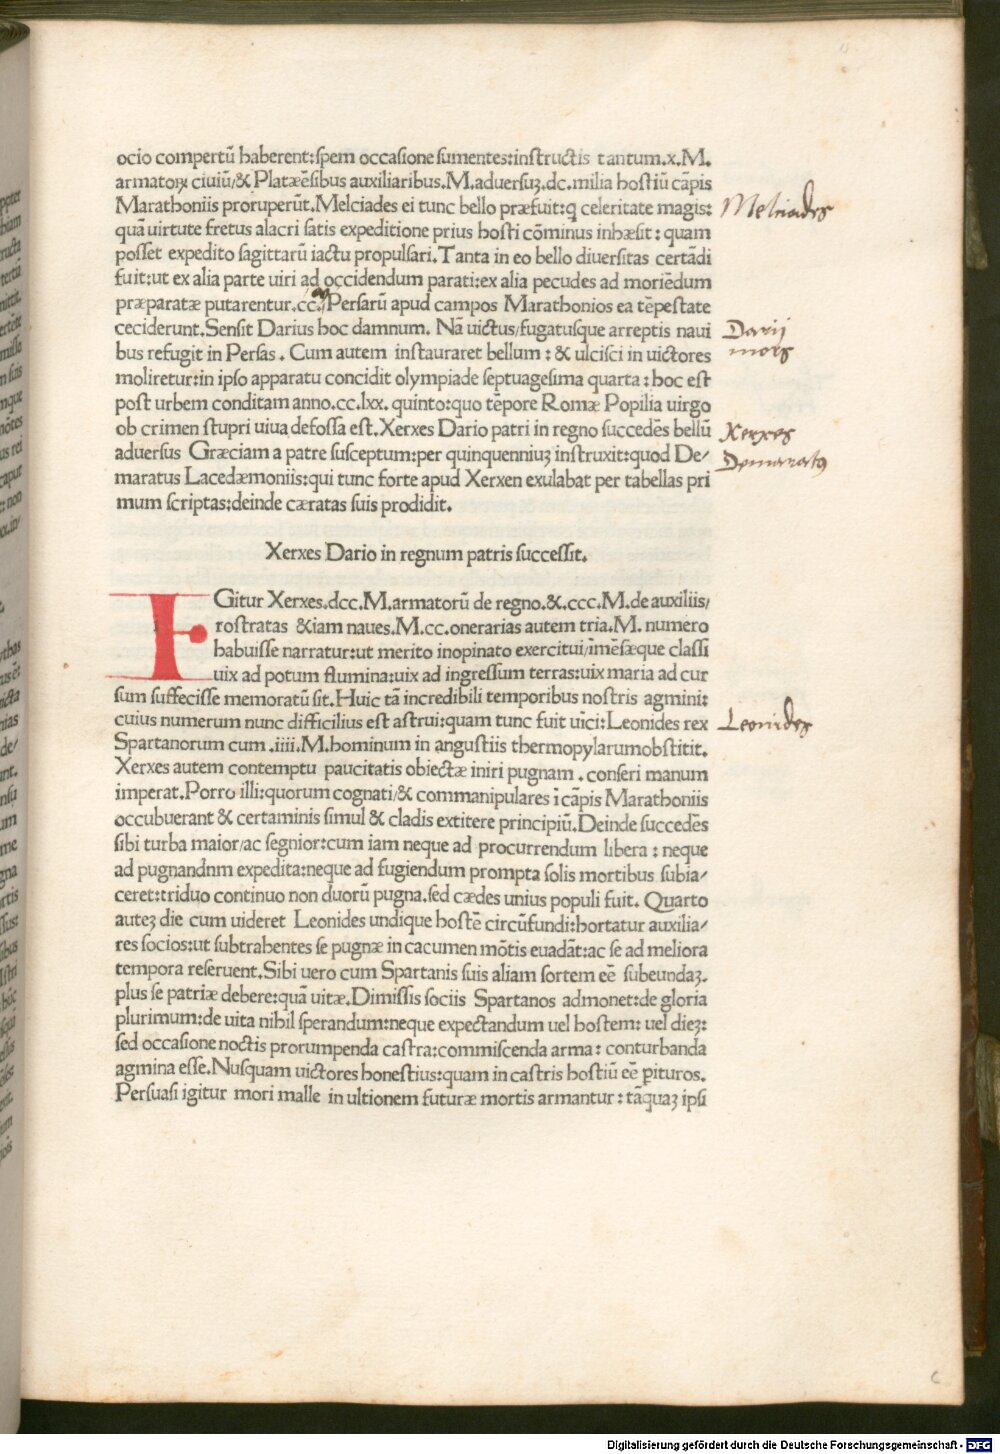 ocio compertū haberent:spem occasione sumentes:instructis tantum.x.M.
armatoꝝ ciuiū/& Platæēsibus auxiliaribus.M.aduersuꝫ.dc.milia hostiū cāpis
Marathoniis proruperūt.Melciades ei tunc bello præfuit:q celeritate magis:
quā uirtute fretus alacri satis expeditione prius hosti cōminus inhæsit: quam
posset expedito sagittarū iactu propulsari.Tanta in eo bello diuersitas certādi
fuit:ut ex alia parte uiri ad occidendum parati:ex alia pecudes ad moriēdum
præparatæ putarentur.cc. Persarū apud campos Marathonios ea tēpestate
ceciderunt.Sensit Darius hoc damnum. Nā uictus/fugatusque arreptis naui
bus refugit in Persas. Cum autem instauraret bellum: & ulcisci in uictores
moliretur:in ipso apparatu concidit olympiade septuagesima quarta: hoc est
post urbem conditam anno.cc.lxx. quinto:quo tēpore Romæ Popilia uirgo
ob crimen stupri uiua defossa est.Xerxes Dario patri in regno succedēs bellū
aduersus Græciam a patre susceptum:per quinquenniuꝫ instruxit:quod De/
maratus Lacedæmoniis:qui tunc forte apud Xerxen exulabat per tabellas pri
mum scriptas:deinde cæratas suis prodidit.
Melciades
Darij
mors
Xerxes
Demaratꝰ
Xerxes Dario in regnum patris successit.
I
Gitur Xerxes.dcc.M.armatorū de regno.&.ccc.M.de auxiliis/
rostratas &iam naues.M.cc.onerarias autem tria.M. numero
habuisse narratur:ut merito inopinato exercitui/imēsæque classi
uix ad potum flumina:uix ad ingressum terras:uix maria ad cur
sum suffecisse memoratū sit.Huic tā incredibili temporibus nostris agmini:
cuius numerum nunc difficilius est astrui:quam tunc fuit uīci:Leonides rex
Spartanorum cum .iiii.M.hominum in angustiis thermopylarumobstitit.
Xerxes autem contemptu paucitatis obiectæ iniri pugnam . conseri manum
imperat.Porro illi:quorum cognati/& commanipulares ī cāpis Marathoniis
occubuerant & certaminis simul & cladis extitere principiū.Deinde succedēs
sibi turba maior/ac segnior:cum iam neque ad procurrendum libera : neque
ad pugnandnm expedita:neque ad fugiendum prompta solis mortibus subia/
ceret:triduo continuo non duorū pugna.sed cædes unius populi fuit. Quarto
auteꝫ die cum uideret Leonides undique hostē circūfundi:hortatur auxilia/
res socios:ut subtrahentes se pugnæ in cacumen mōtis euadāt:ac se ad meliora
tempora reseruent.Sibi uero cum Spartanis suis aliam sortem eē subeundaꝫ.
plus se patriæ debere:quā uitæ.Dimissis sociis Spartanos admonet:de gloria
plurimum:de uita nihil sperandum:neque expectandum uel hostem: uel dieꝫ:
sed occasione noctis prorumpenda castra:commiscenda arma: conturbanda
agmina esse.Nusquam uictores honestius:quam in castris hostiū eē pituros.
Persuasi igitur mori malle in ultionem futuræ mortis armantur: tāquaꝫ ipsi
Leonides
c
Digitalisierung gefördert durch die Deutsche Forschungsgemeinschaft - DFG